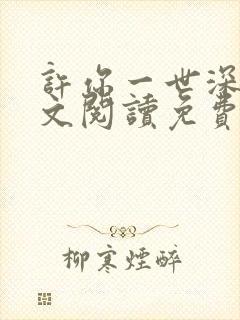 許你一世深
文閱讀免費
柳寒煙醉